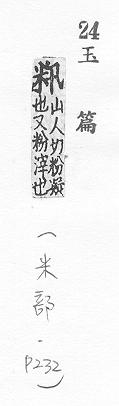 24
玉篇
籸
山人切粉
也又粉滓也
（米部·P232）